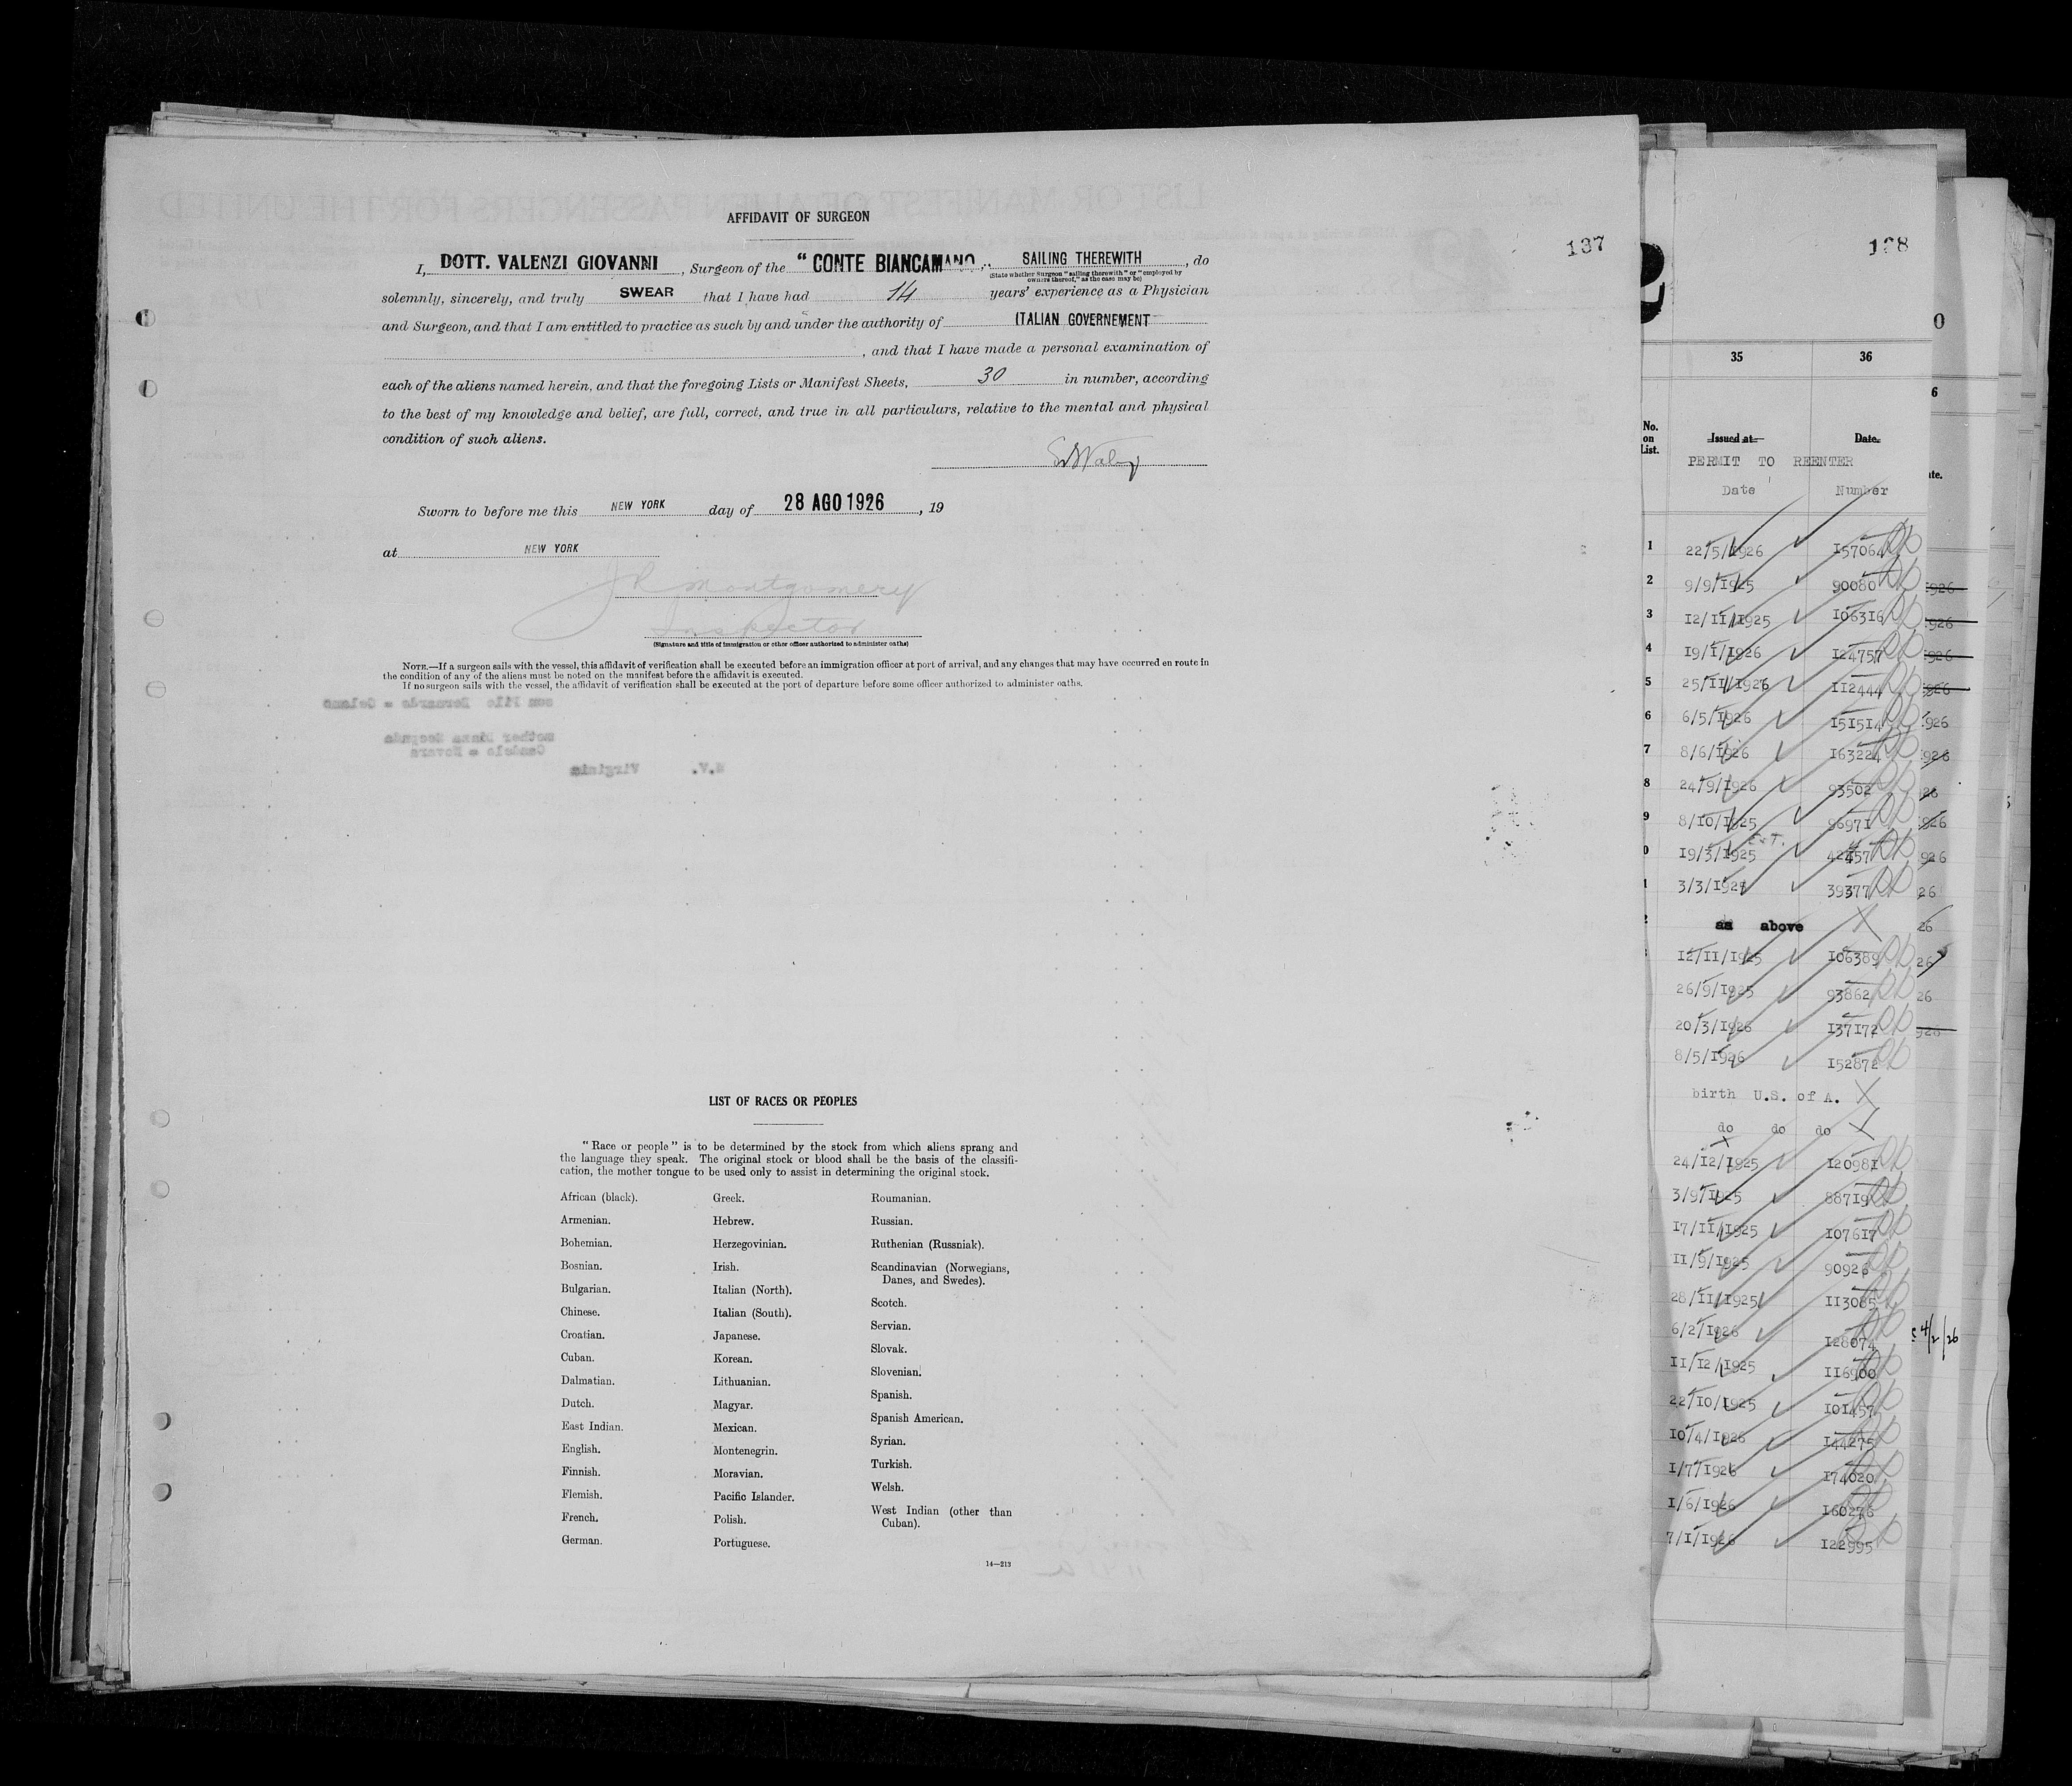 AFFIDAVIT OF SURGEON
137
I, DOTT. VALENZI GIOVANNI, Surgeon of the " CONTE BIANCAMANO " SAILING THEREWITH, do
(State whether Surgeon "sailing therewith" or "employed by owners thereof," as the case may be)
solemnly, sincerely, and truly SWEAR that I have had 14 years' experience as a Physician
and Surgeon, and that I am entitled to practice as such by and under the authority of ITALIAN GOVERNEMENT
, and that I have made a personal examination of
each of the aliens named herein, and that the foregoing Lists or Manifest Sheets, 30 in number, according
to the best of my knowledge and belief, are full, correct, and true in all particulars, relative to the mental and physical
condition of such aliens.
Sworn to before me this NEW YORK day of 28 AGO 1926, 19
at NEW YORK
J R Montgomery
Inspector
(Signature and title of immigration or other officer authorized to administer oaths)
NOTE.—If a surgeon sails with the vessel, this affidavit of verification shall be executed before an immigration officer at port of arrival, and any changes that may have occurred en route in
the condition of any of the aliens must be noted on the manifest before the affidavit is executed.
If no surgeon sails with the vessel, the affidavit of verification shall be executed at the port of departure before some officer authorized to administer oaths.
LIST OF RACES OR PEOPLES
"Race or people" is to be determined by the stock from which aliens sprang and
the language they speak. The original stock or blood shall be the basis of the classifi-
cation, the mother tongue to be used only to assist in determining the original stock.
African (black).
Armenian.
Bohemian.
Bosnian.
Bulgarian.
Chinese.
Croatian.
Cuban.
Dalmatian.
Dutch.
East Indian.
English.
Finnish.
Flemish.
French.
German.
Greek.
Hebrew.
Herzegovinian.
Irish.
Italian (North).
Italian (South).
Japanese.
Korean.
Lithuanian.
Magyar.
Mexican.
Montenegrin.
Moravian.
Pacific Islander.
Polish.
Portuguese.
Roumanian.
Russian.
Ruthenian (Russniak).
Scandinavian (Norwegians,
Danes, and Swedes).
Scotch.
Servian.
Slovak.
Slovenian.
Spanish.
Spanish American.
Syrian.
Turkish.
Welsh.
West Indian (other than
Cuban).
14—213
138
35 36
No. on List. Issued at Date.
PERMIT TO REENTER
Date Number
1 22/5/1926 157064
2 9/9/1925 90080
3 12/11/1925 106316
4 19/1/1926 124757
5 25/11/1926 112444
6 6/5/1926 151514
7 8/6/1926 163224
8 24/9/1926 93502
9 8/10/1925 96971
19/3/1925 42457
3/3/1925 39377
as above
12/11/1925 106389
26/9/1925 93862
20/3/1926 137172
8/5/1926 152872
birth U.S. of A.
do do do
24/12/1925 120981
3/9/1925 88719
17/11/1925 107617
11/9/1925 90926
28/11/1925 113085
6/2/1926 128074
11/12/1925 116900
22/10/1925 101457
10/4/1926 144275
1/7/1926 174020
1/6/1926 160276
7/1/1926 122995
4/2/26